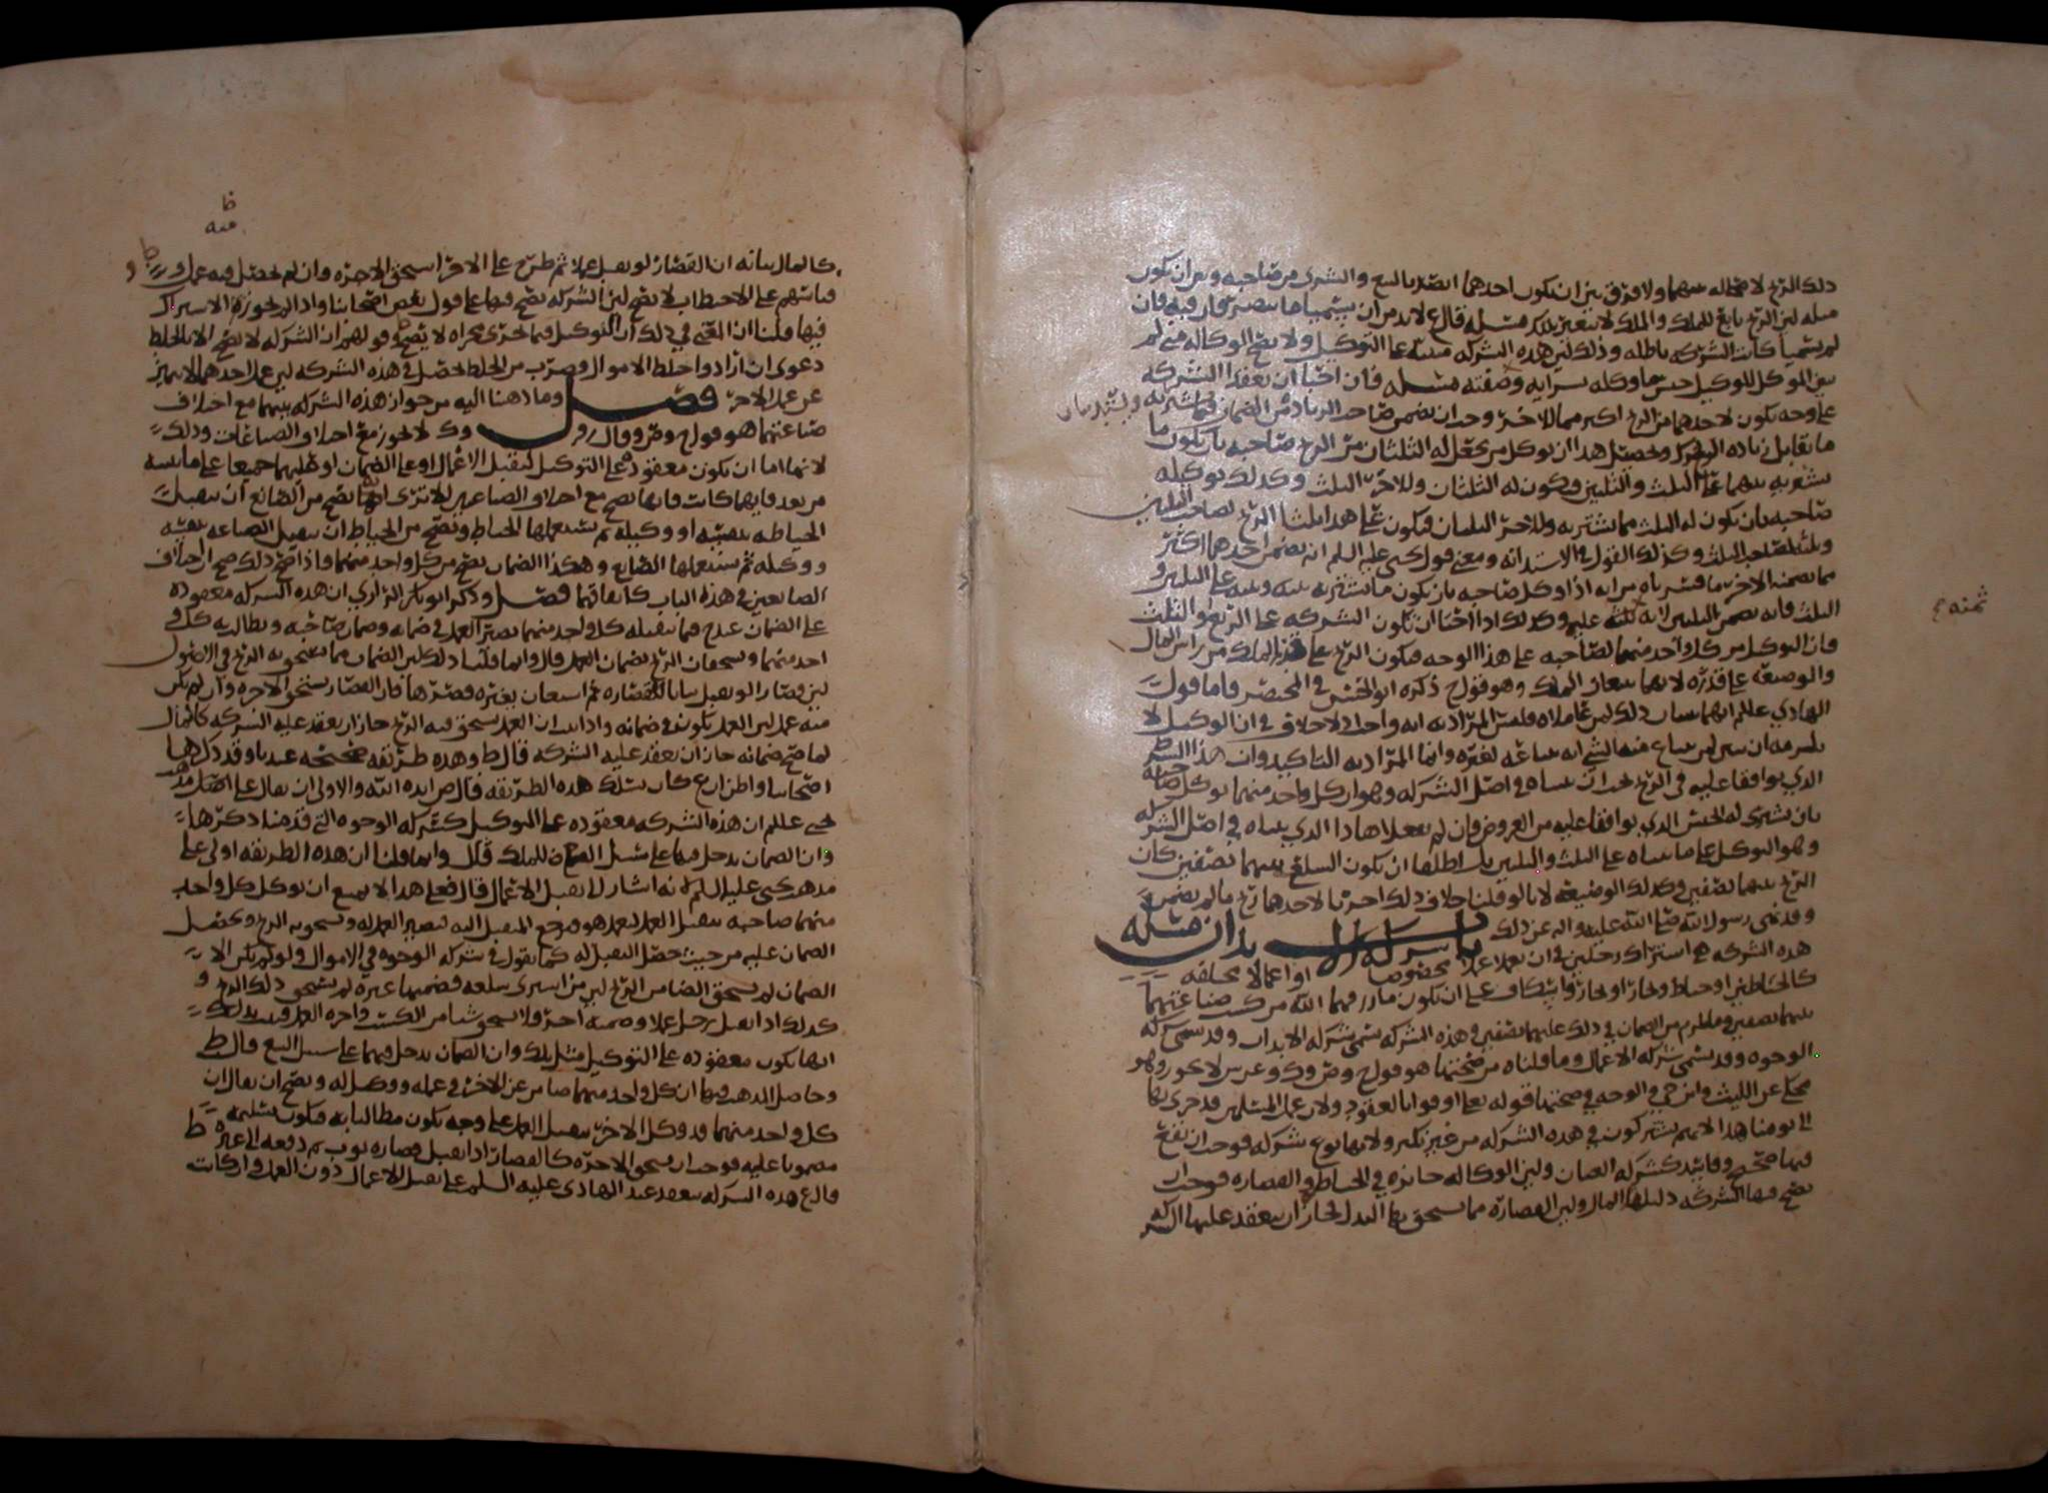 ذلك الربح لا محاله بينهما ولا فرق بين ان يكون احدهما ابصر بالبيع والشرى من صاحبه وبين ان يكون
مثله لان الربح تابع للملك والملك لا يتغير بذلك مسله قال ع لا بد من ان يسميا ما يتصرفان فيه فان
لم يسميا كانت الشركه باطله وذلك لان هذه الشركه مبنيه على التوكيل ولا يصح الوكاله متى لم
يعين الموكل للوكيل جنس ما وكله بشرايه وصفته مسله فان احبا ان يعقدا الشركه
على وجه يكون لاحدهما من الربح اكثر مما للاخر وجب ان يضمن صاحب الزياده من الضمان فيما يشتريه
ما يقابل زياده الربح وتحصيل هذا ان يوكل من يجعل له الثلثان من الربح صاحبه بان يكون ما
يشتريه بينهما على الثلث والثلثين ويكون له الثلثان وللاخر الثلث وكذلك توكيله
صاحبه بان يكون له الثلث مما يشتريه وللاخر الثلثان فيكون على هذا ثلثا الربح لصاحب الثلثين
وثلثه لصاحب الثلث وكذلك القول في الاستدانه ومعنى قول يحيى عليه السلم انه يضمن احدهما اكثر
مما يضمنه الاخر مما يشتريانه يراد به اذا وكل صاحبه بان يكون ما يشتري به بينه وبينه على الثلثين و
الثلث فانه يضمن الثلثين لانه ثمنه عليه وكذلك اذا احبا ان تكون الشركه على الربع والثلث
فان التوكيل من كل واحد منهما لصاحبه على هذا الوجه فيكون الربح على قدر الملك من راس المال
والوضيعه على قدره لانهما يتبعان الملك وهو قول ح ذكره ابو الحسن في المختصر فاما قول
الهادي عللم انهما يبينان ذلك لمن عاملاه فليس المراد به انه واجب ولا خلاف في ان الوكيل لا
يلزمه ان يبين لمن يبتاع منه الشي انه يبتاعه لغيره وانما المراد به التاكيد وان هذا الشرط
الذي توافقا عليه في الربح يجب ان يبيناه في اصل الشركه وهو ان كل واحد منهما يوكل صاحبه
بان يشتري له الجنس الذي توافقا عليه من العروض فان لم يفعلا هذا الذي بيناه في اصل الشركه
وهو التوكيل على ما بيناه على الثلث والثلثين بل اطلقا ان يكون السلع بينهما نصفين كان
الربح بينهما نصفين وكذلك الوضيعه لانا لو قلنا خلاف ذلك اجزنا لاحدهما ربح ما لم يضمن
وقد نهى رسول الله صلى الله عليه واله عن ذلك باب شركه الابدان مسله
هذه الشركه هي اشتراك رجلين في ان يعملا عملا مخصوصا او اعمالا مختلفه
كالخياطين او خياط ونجار او نجار واسكاف على ان يكون ما رزقهما الله من كسب صناعتهما
بينهما نصفين وما لزم من الضمان في ذلك عليهما نصفين وهذه الشركه تسمى شركه الابدان وقد تسمى شركه
الوجوه وقد تسمى شركه الاعمال وما قلناه من صحتها هو قول ح وص وك وعن س لا يجوز وهو
محكي عن الليث وابن حي والوجه في صحتها قوله تعالى اوفوا بالعقود ولان عمل المسلمين قد جرى بها
الى يومنا هذا لانهم يشتركون في هذه الشركه من غير نكير ولانها نوع شركه فوجب ان يقع
فيها صحيح وفاسد كشركه العنان ولان الوكاله جائزه في الخياطه والقصاره فوجب ان
تصح فيها الشركه دليلها المال ولان القصاره مما يستحق بها البدل فجاز ان ينعقد عليها الشركه
ثمنه
كالمال بيانه ان القصار لو تقبل عملا ثم طرح على الاخر استحق الاجره وان لم يحصل فيه عمل
قياسهم على الاحتطاب لا يصح لان الشركه تصح فيها على قول بعض اصحابنا واذا لم يجوز الاشتراك
فيها قلنا ان المعنى في ذلك ان التوكيل فيما جرى مجراه لا يصح وقولهم ان الشركه لا تصح الا بالخلط
دعوى ان ارادوا خلط الاموال وضرب من الخلط حصل في هذه الشركه لان عمل احدهما لا يتميز
عن عمل الاخر فصل وما ذهبنا اليه من جواز هذه الشركه بينهما مع اختلاف
صناعتهما هو قول ح وص وقال زفر وك لا يجوز مع اختلاف الصناعات وذلك
لانها اما ان تكون معقوده على التوكيل لتقبل الاعمال او على الضمان او عليهما جميعا على ما نبينه
من بعد فايهما كانت فانها تصح مع اختلاف الصناعتين الا ترى انه يصح من الصانع ان يتقبل
الخياطه بنفسه او وكيله ثم يستعملها الخياط ويصح من الخياط ان يتقبل الصياغه بنفسه
ووكيله ثم يستعملها الصايغ وهكذا الضمان يصح من كل واحد منهما فاذا صح ذلك صح ان اختلاف
الصانعين في هذه الباب كاتفاقهما فصل وذكر ابو بكر الرازي ان هذه الشركه معقوده
على الضمان عند ح فما يتقبله كل واحد منهما يصير العمل في ضمانه وضمان صاحبه ويطالب به كل
احد منهما ويستحقان الربح بضمان العمل قال وانما قلنا ذلك لان الضمان مما يستحق به الربح في الاصول
لان قصارا لو تقبل ثيابا للقصاره ثم استعان بغيره فقصرها فان القصار يستحق الاجره وان لم يكن
منه عمل لان العمل يكون في ضمانه واذا ثبت ان العمل يستحق فيه الربح جاز ان يعقد عليه الشركه كالمال
لما صح ضمانه جاز ان يعقد عليه الشركه قال ط وهذه طريقه صحيحه عندنا وقد ذكرها
اصحابنا واظن ان ع كان يسلك هذه الطريقه قال ص ايده الله والاولى ان يقال على اصل مذهب
يحيى عللم ان هذه الشركه معقوده على التوكيل كشركه الوجوه التي قدمنا ذكرها
وان الضمان يدخل فيها على سبيل التبع للملك قال وانما قلنا ان هذه الطريقه اولى على
مذهب يحيى عليه السلم لانه اشار الى تقبل الاعمال قال فعلى هذا لا يمتنع ان يوكل كل واحد
منهما صاحبه بتقبل العمل
الضمان عليه من حيث حصل التقبل له كما نقول في شركه الوجوه في الاموال ولو لم يكن الا
الضمان لم يستحق الضامن الربح لان من اشترى سلعه فضمنها غيره لم يستحق ذلك الربح و
كذلك اذا تقبل رجل عملا وضمنه اخر فلا يستحق شيا من الكسب واجره العمل فثبت بذلك
انها تكون معقوده على التوكيل مثل تلك وان الضمان يدخل فيهما على سبيل التبع قال ط
وحاصل المذهب فيها ان كل واحد منهما ضامن عن الاخر في عمله ووكيل له ويصح ان يقال ان
كل واحد منهما قد وكل الاخر بتقبل العمل على وجه يكون مطالبا به فيكون تسليمه
مضمونا عليه فوجب ان يستحق الاجره كالقصار اذا تقبل قصاره ثوب ثم دفعه الى غيره
قال ع هذه الشركه تنعقد عند الهادي عليه السلم على تقبل الاعمال دون العمل وان كانت